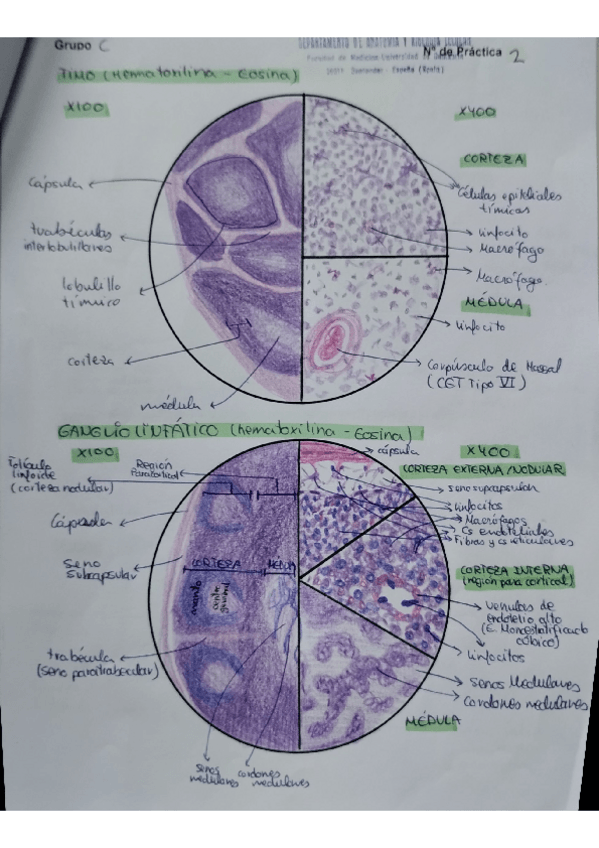 Grupo C
DEPARTAMENTO DE ANATOMIA Y BIOLOGIA CELULAR
Facultad de Medicina-Universidad de
Santander - España (Spain)
Nº de Práctica 2
TIMO (Hematoxilina - Eosina)
X100
X400
CORTEZA
Células epiteliales
tímicas
linfocito
Macrófago
Cápsula
trabéculas
interlobulillares
lobulillo
tímico
corteza
médula
Macrófago.
MÉDULA
linfocito
Corpúsculo de Hassal
(CET Tipo VI)
GANGLIO LINFÁTICO (Hematoxilina - Eosina)
X100
X400
Folículo
linfoide
(corteza nodular)
Región
Paracortical
Cápsula
Seno
Subcapsular
CORTEZA
MÉDULA
manto
centro
germinal
trabécula
(seno paratrabecular)
senos
medulares
cordones
medulares
cápsula
CORTEZA EXTERNA/NODULAR
seno supracapsular
linfocitos
Macrófagos
Cs endoteliales
Fibras y cs reticulares
CORTEZA INTERNA
(región para cortical)
Vénulas de
endotelio alto
(E. Monoestratificado
cúbico)
linfocitos
Senos Medulares
cordones medulares
MÉDULA